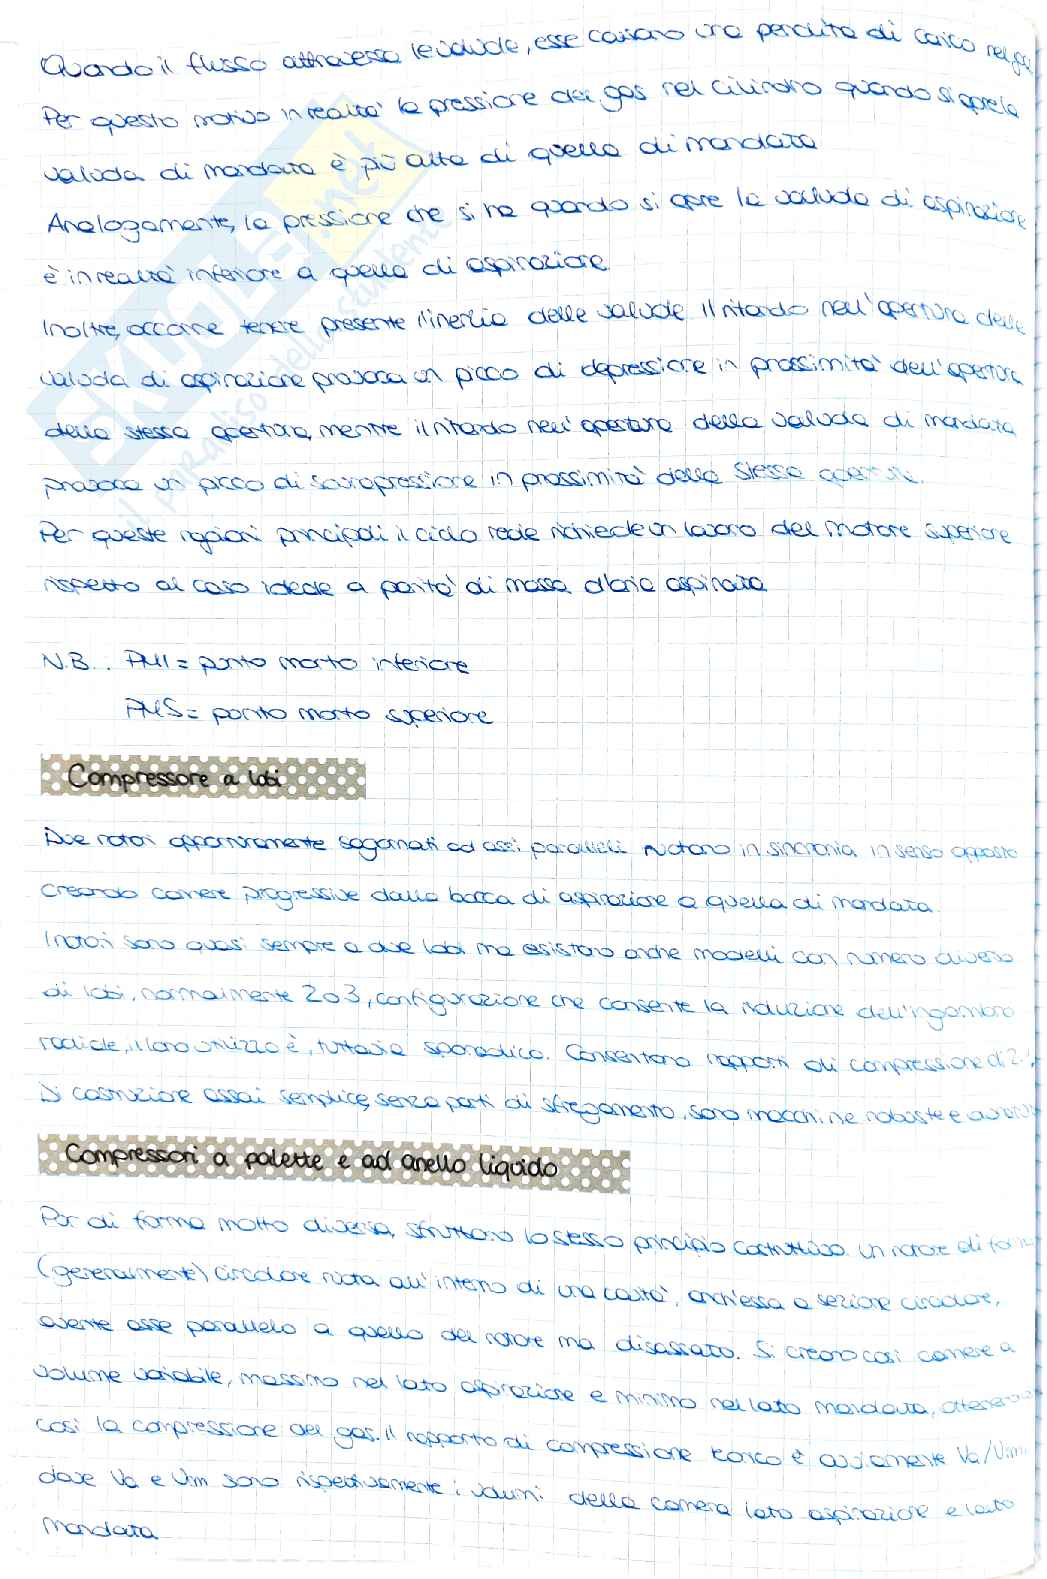 Quando il flusso attraversa le valvole, esse causano una perdita di carico nel gas
Per questo motivo in realtà la pressione dei gas nel cilindro quando si apre la
valvola di mandata è più alta di quella di mandata
Analogamente, la pressione che si ha quando si apre la valvola di aspirazione
è in realtà inferiore a quella di aspirazione.
Inoltre, occorre tenere presente l'inerzia delle valvole. Il ritardo nell'apertura della
valvola di aspirazione provoca un picco di depressione in prossimità dell'apertura
della stessa apertura, mentre il ritardo nell'apertura della valvola di mandata
provoca un picco di sovrapressione in prossimità della stessa apertura.
Per queste ragioni principali il ciclo reale richiede un lavoro del motore superiore
rispetto al caso ideale a parità di massa d'aria aspirata
N.B.: PMI = punto morto inferiore
PMS = punto morto superiore
Compressore a lobi
Due rotori opportunamente sagomati ad assi paralleli ruotano in sincronia in senso opposto
creando camere progressive dalla bocca di aspirazione a quella di mandata.
I rotori sono quasi sempre a due lobi ma esistono anche modelli con numero diverso
di lobi, normalmente 2 o 3, configurazione che consente la riduzione dell'ingombro
radiale, il loro utilizzo è, tuttavia sporadico. Consentono rapporti di compressione di
Di costruzione assai semplice, senza parti di sfregamento, sono macchine robuste e
Compressori a palette e ad anello liquido
Pur di forma molto diversa, sfruttano lo stesso principio costruttivo. Un rotore di forma
(generalmente) circolare ruota all'interno di una cavità, anch'essa a sezione circolare,
avente asse parallelo a quello del rotore ma disassato. Si creano così camere a
volume variabile, massimo nel lato aspirazione e minimo nel lato mandata, ottenendo
così la compressione del gas. Il rapporto di compressione teorico è ovviamente Va/Vm
dove Va e Vm sono rispettivamente i volumi della camera lato aspirazione e lato
mandata
SKUOLA.net
il paradiso dello studente